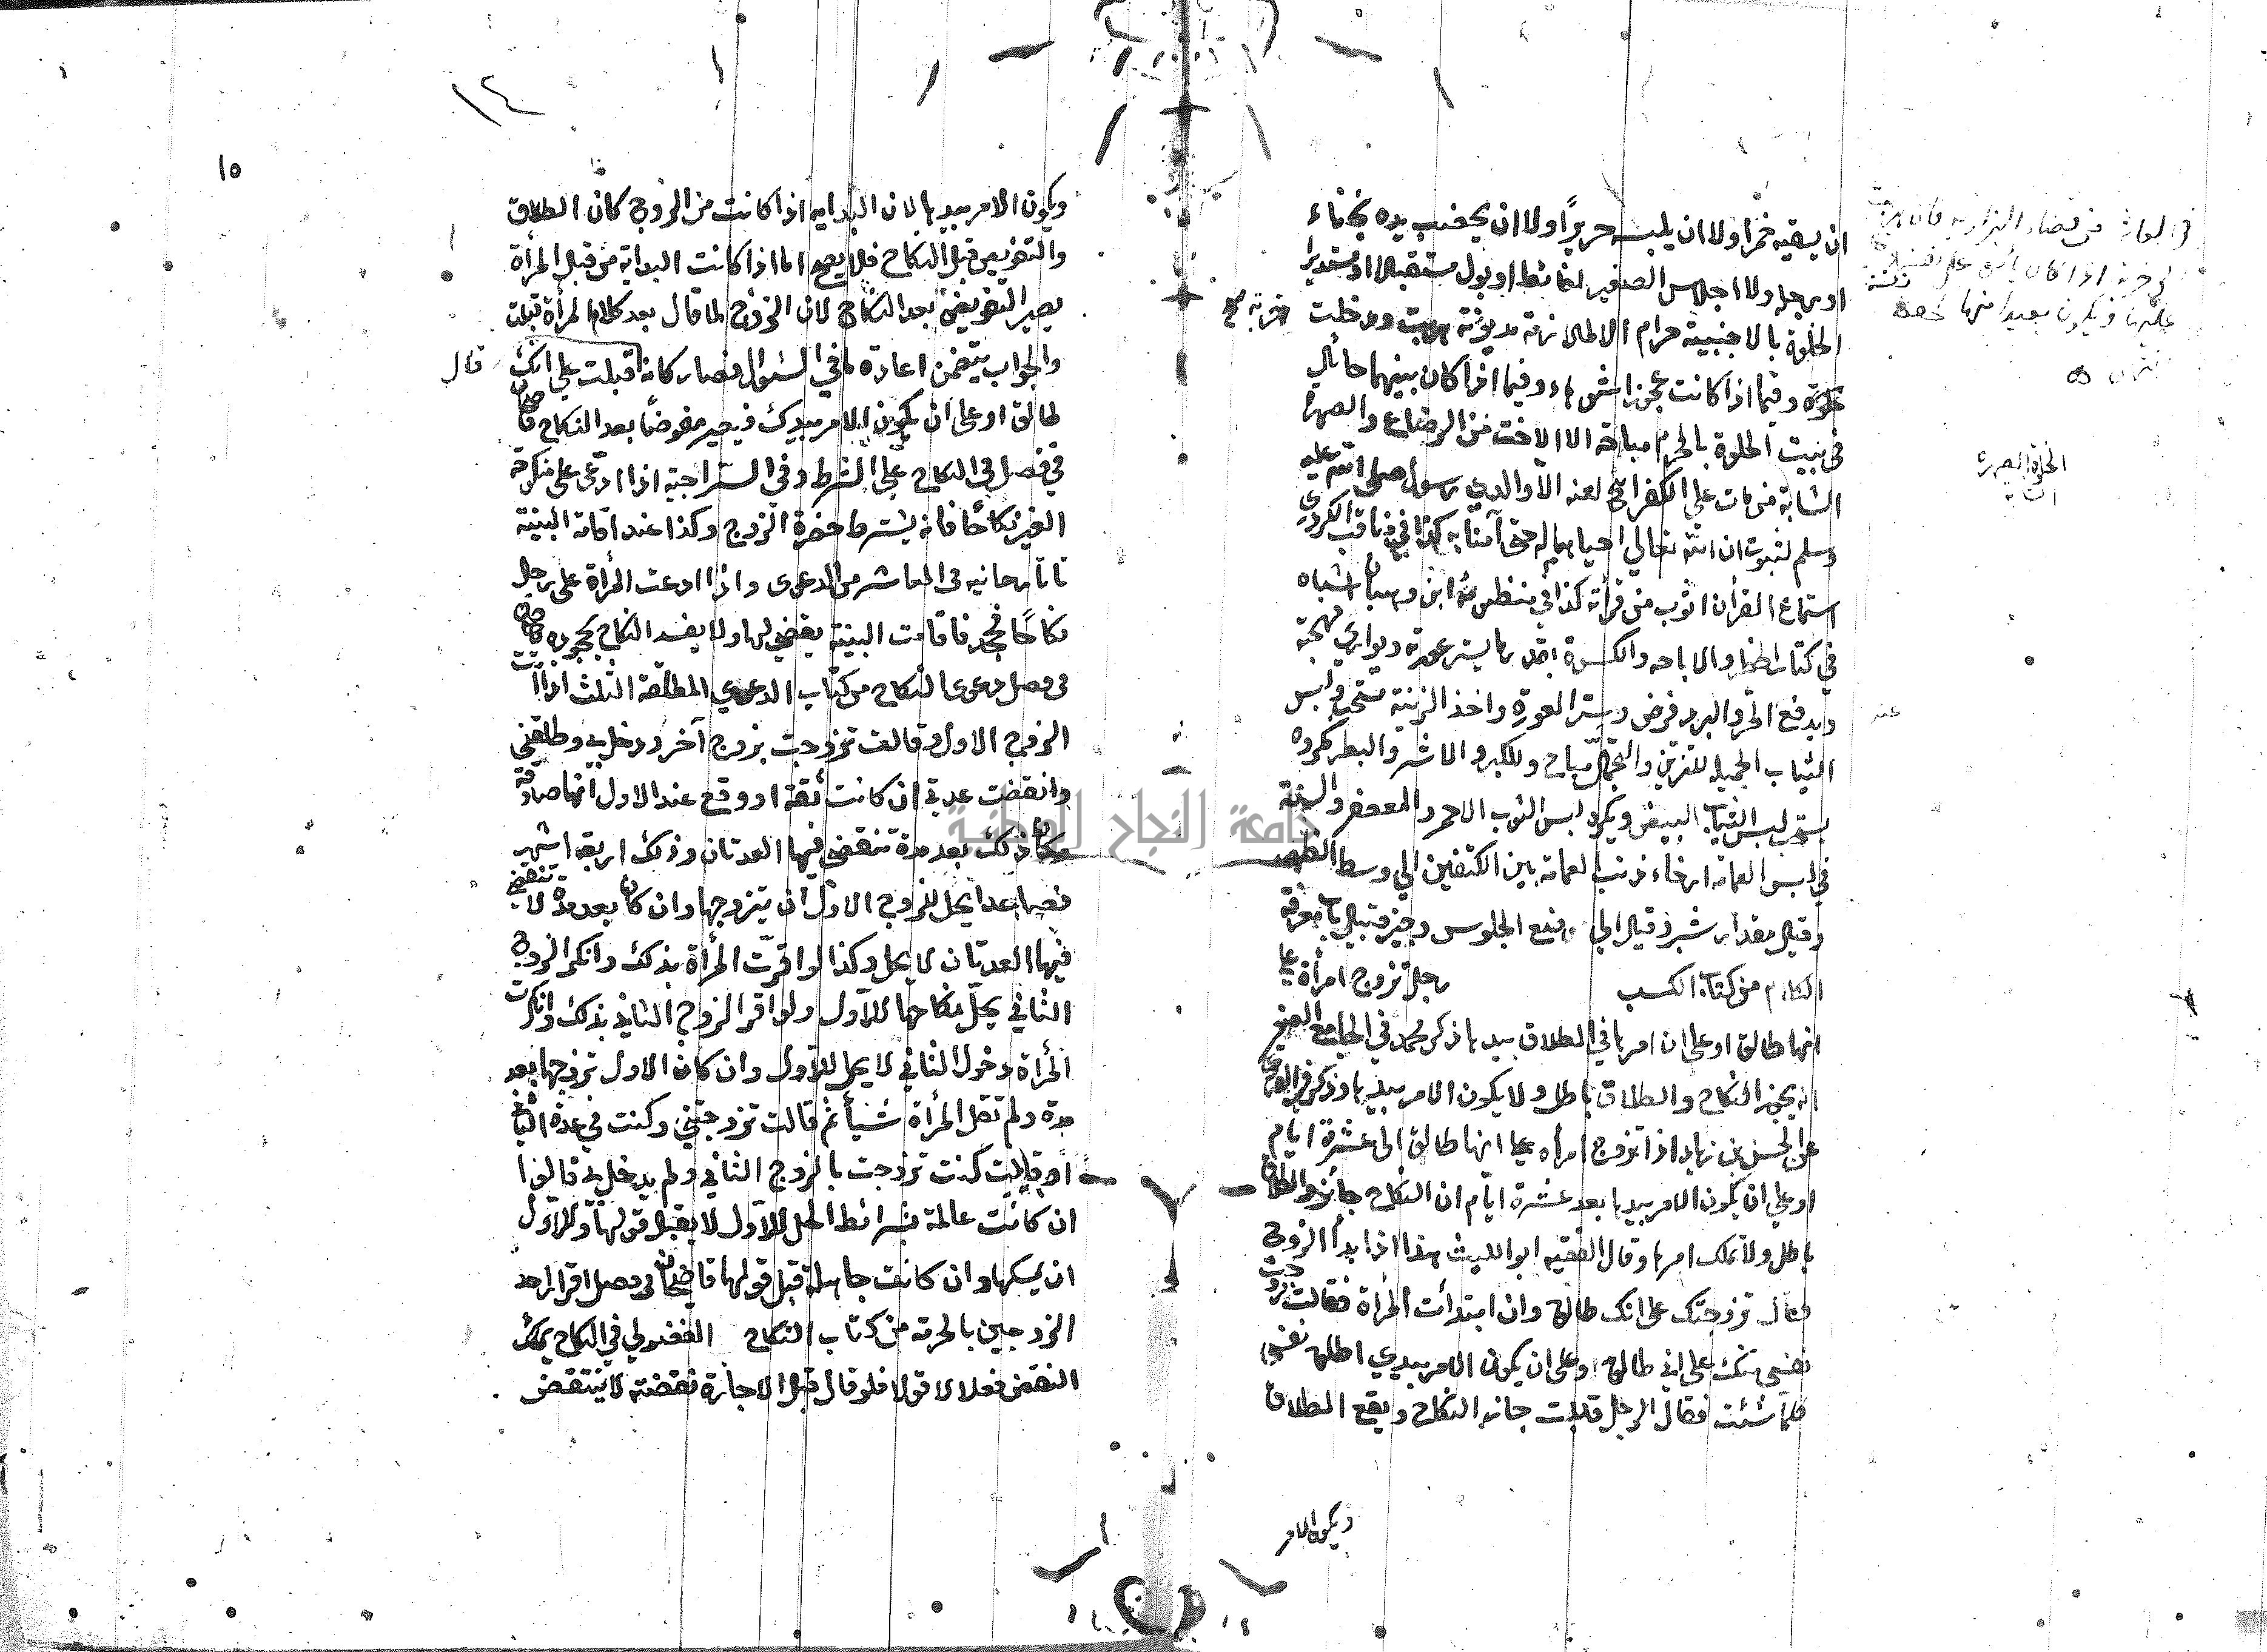 ان يسقيه خمرا ولا ان يلبسه حريرًا ولا ان يخضب يده بحناء
او رجله ولا اجلاس الصغير لغائط او بول مستقبلا او مستدبرا
الخلوة بالاجنبية حرام الا لملازمة مديونة هربت ودخلت خربة صح
وفيما اذا كانت عجوزا شوهاء وفيما اذا كان بينهما حائل
في بيت الخلوة بالمحرم مباحة الا الاخت من الرضاع والصهرة
الشابة من مات على الكفر ابيح لعنه الا والدي رسول الله صلى الله عليه
وسلم لثبوت ان الله تعالى احياهما له حتى آمنا به كذا في مناقب الكردري
استماع القرآن اثوب من قرأته كذا في منظومة ابن وهبان اشباه
في كتاب الحظر والاباحه والكسوة بقدر ما يستر عورته ويواري مهجته
ويدفع الحر والبرد فرض وستر العورة واخذ الزينة مستحب ولبس
الثياب الجميله للتزين والتجمل مباح وللكبر والاشر والبطر مكروه
يستحب لبس الثياب البيض ويكره لبس الثوب الاحمر والمعصفر والسنة
في لبس العمامة ارخاء ذنب العمامة بين الكتفين الى وسط الظهر
وقيل مقدار شبر وقيل الى موضع الجلوس وجيز قبيل باب معرفة
الكلام من كتاب الكسب رجل تزوج امرأة على
انها طالق او على ان امرها في الطلاق بيدها ذكر محمد في الجامع الصغير
انه يجوز النكاح والطلاق باطل ولا يكون الامر بيدها وذكر في الفتاوى
عن الحسن بن زياد اذا تزوج امرأه على انها طالق الى عشرة ايام
او على ان يكون الامر بيدها بعد عشرة ايام ان النكاح جائز والطلاق
باطل ولا تملك امرها وقال الفقيه ابو الليث هذا اذا بدأ الزوج
فقال تزوجتك على انك طالق وان ابتدأت المرأة فقالت زوجت
نفسي منك على اني طالق او على ان يكون الامر بيدي اطلق نفسي
كلما شئت فقال الرجل قبلت جاز النكاح ويقع الطلاق
ويكون الامر
في العاشر من قضاء البزازيه
الخلوة بالصهرة
الشابة
عنه
١٤
١٥
ويكون الامر بيدها لان البدايه اذا كانت من الزوج كان الطلاق
والتفويض قبل النكاح فلا يصح اما اذا كانت البداية من قبل المرأة
يصير التفويض بعد النكاح لان الزوج لما قال بعد كلام المرأة قبلت
والجواب يتضمن اعادة ما في السؤال فصار كانه قال قبلت على انك
طالق او على ان يكون الامر بيدك فيصير مفوضًا بعد النكاح قاضيخان
في فصل في النكاح على الشرط وفي السراجية اذا ادعى على منكوحة
الغير نكاحًا فانه يشترط حضرة الزوج وكذا عند اقامة البينة
تاتارخانيه في العاشر من الدعوى واذا ادعت المرأة على رجل
نكاحًا فجحد فاقامت البينة يقضى لها ولا يفسد النكاح بجحوده قاضيخان
في فصل دعوى النكاح من كتاب الدعوى المطلقة الثلث اذا اتت
الزوج الاول وقالت تزوجت بزوج آخر ودخل بي وطلقني
وانقضت عدتي ان كانت ثقة او وقع عند الاول انها صادقة
وكان ذلك بعد مدة تنقضي فيها العدتان وذلك اربعة اشهر
فصاعدا يحل للزوج الاول ان يتزوجها وان كان بعد مدة لا تنقضي
فيها العدتان لا يحل وكذا لو اقرت المرأة بذلك وانكر الزوج
الثاني يحل نكاحها للاول ولو اقر الزوج الثاني بذلك وانكرت
المرأة دخول الثاني لا يحل للاول وان كان الاول تزوجها بعد
مدة ولم تقل المرأة شيأ ثم قالت تزوجتني وكنت في عدة الثاني
او قالت كنت تزوجت بالزوج الثاني ولم يدخل بي قالوا
ان كانت عالمة بشرائط الحل للاول لا يقبل قولها وللاول
ان يمسكها وان كانت جاهلة قبل قولها قاضيخان في فصل اقرار احد
الزوجين بالحرمة من كتاب النكاح الفضولي في النكاح يملك
النقض فعلا لا قولا فلو قال قبل الاجازة نقضته لا ينتقض
جامعة النجاح الوطنية